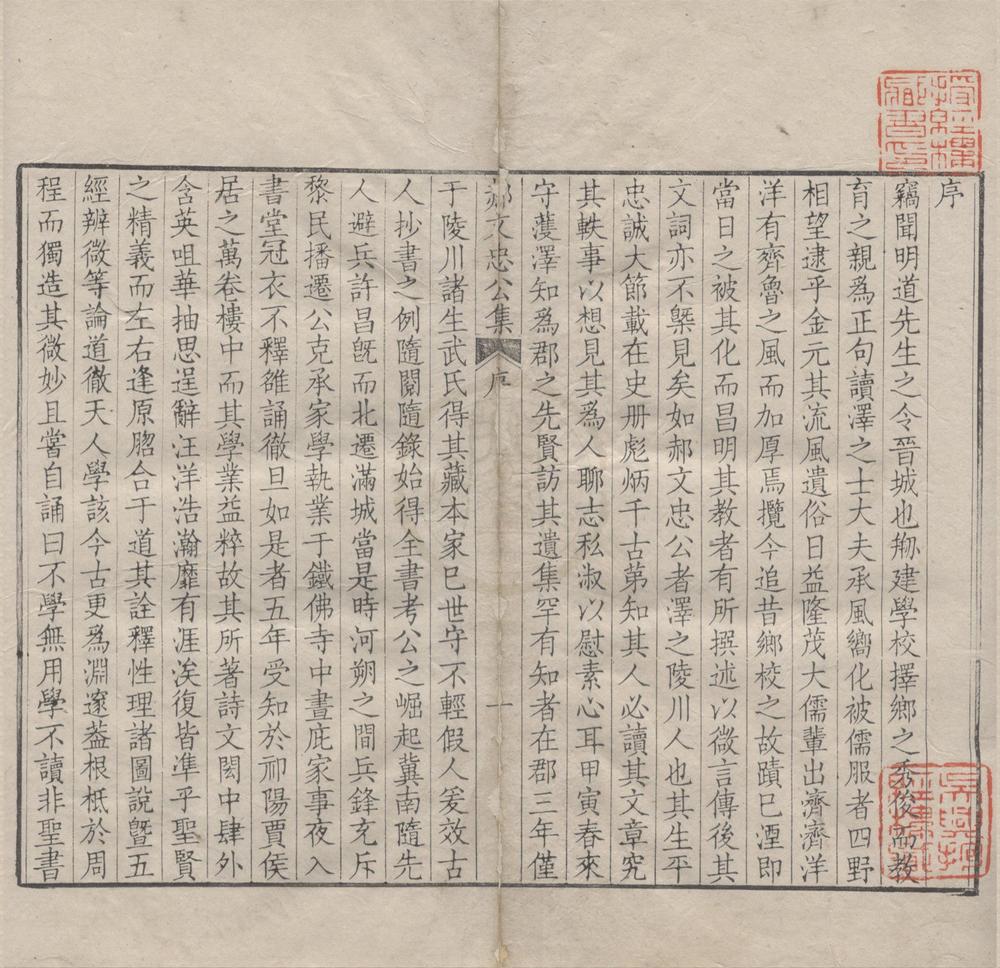 序
竊聞明道先生之令晉城也剙建學校擇鄉之秀俊而教
育之親爲正句讀澤之士大夫承風嚮化被儒服者四野
相望逮乎金元其流風遺俗日益隆茂大儒輩出濟濟洋
洋有齊魯之風而加厚焉攬今追昔鄉校之故蹟已湮即
當日之被其化而昌明其教者有所撰述以微言傳後其
文詞亦不槩見矣如郝文忠公者澤之陵川人也其生平
忠誠大節載在史册彪炳千古苐知其人必讀其文章究
其軼事以想見其爲人聊志私淑以慰素心耳甲寅春來
守蒦澤知爲郡之先賢訪其遺集罕有知者在郡三年僅
郝文忠公集 序 一
于陵川諸生武氏得其藏本家已世守不輕假人爰效古
人抄書之例隨閱隨錄始得全書考公之崛起冀南隨先
人避兵許昌旣而北遷滿城當是時河朔之間兵鋒充斥
黎民播遷公克承家學執業于鐵佛寺中晝庇家事夜入
書堂冠衣不釋雒誦徹旦如是者五年受知於祁陽賈侯
居之萬卷樓中而其學業益粹故其所著詩文閎中肆外
含英咀華抽思逞辭汪洋浩瀚靡有涯涘復皆凖乎聖賢
之精義而左右逢原脗合于道其詮釋性理諸圖說曁五
經辨微等論道徹天人學該今古更爲淵邃葢根柢於周
程而獨造其微妙且嘗自誦曰不學無用學不讀非聖書